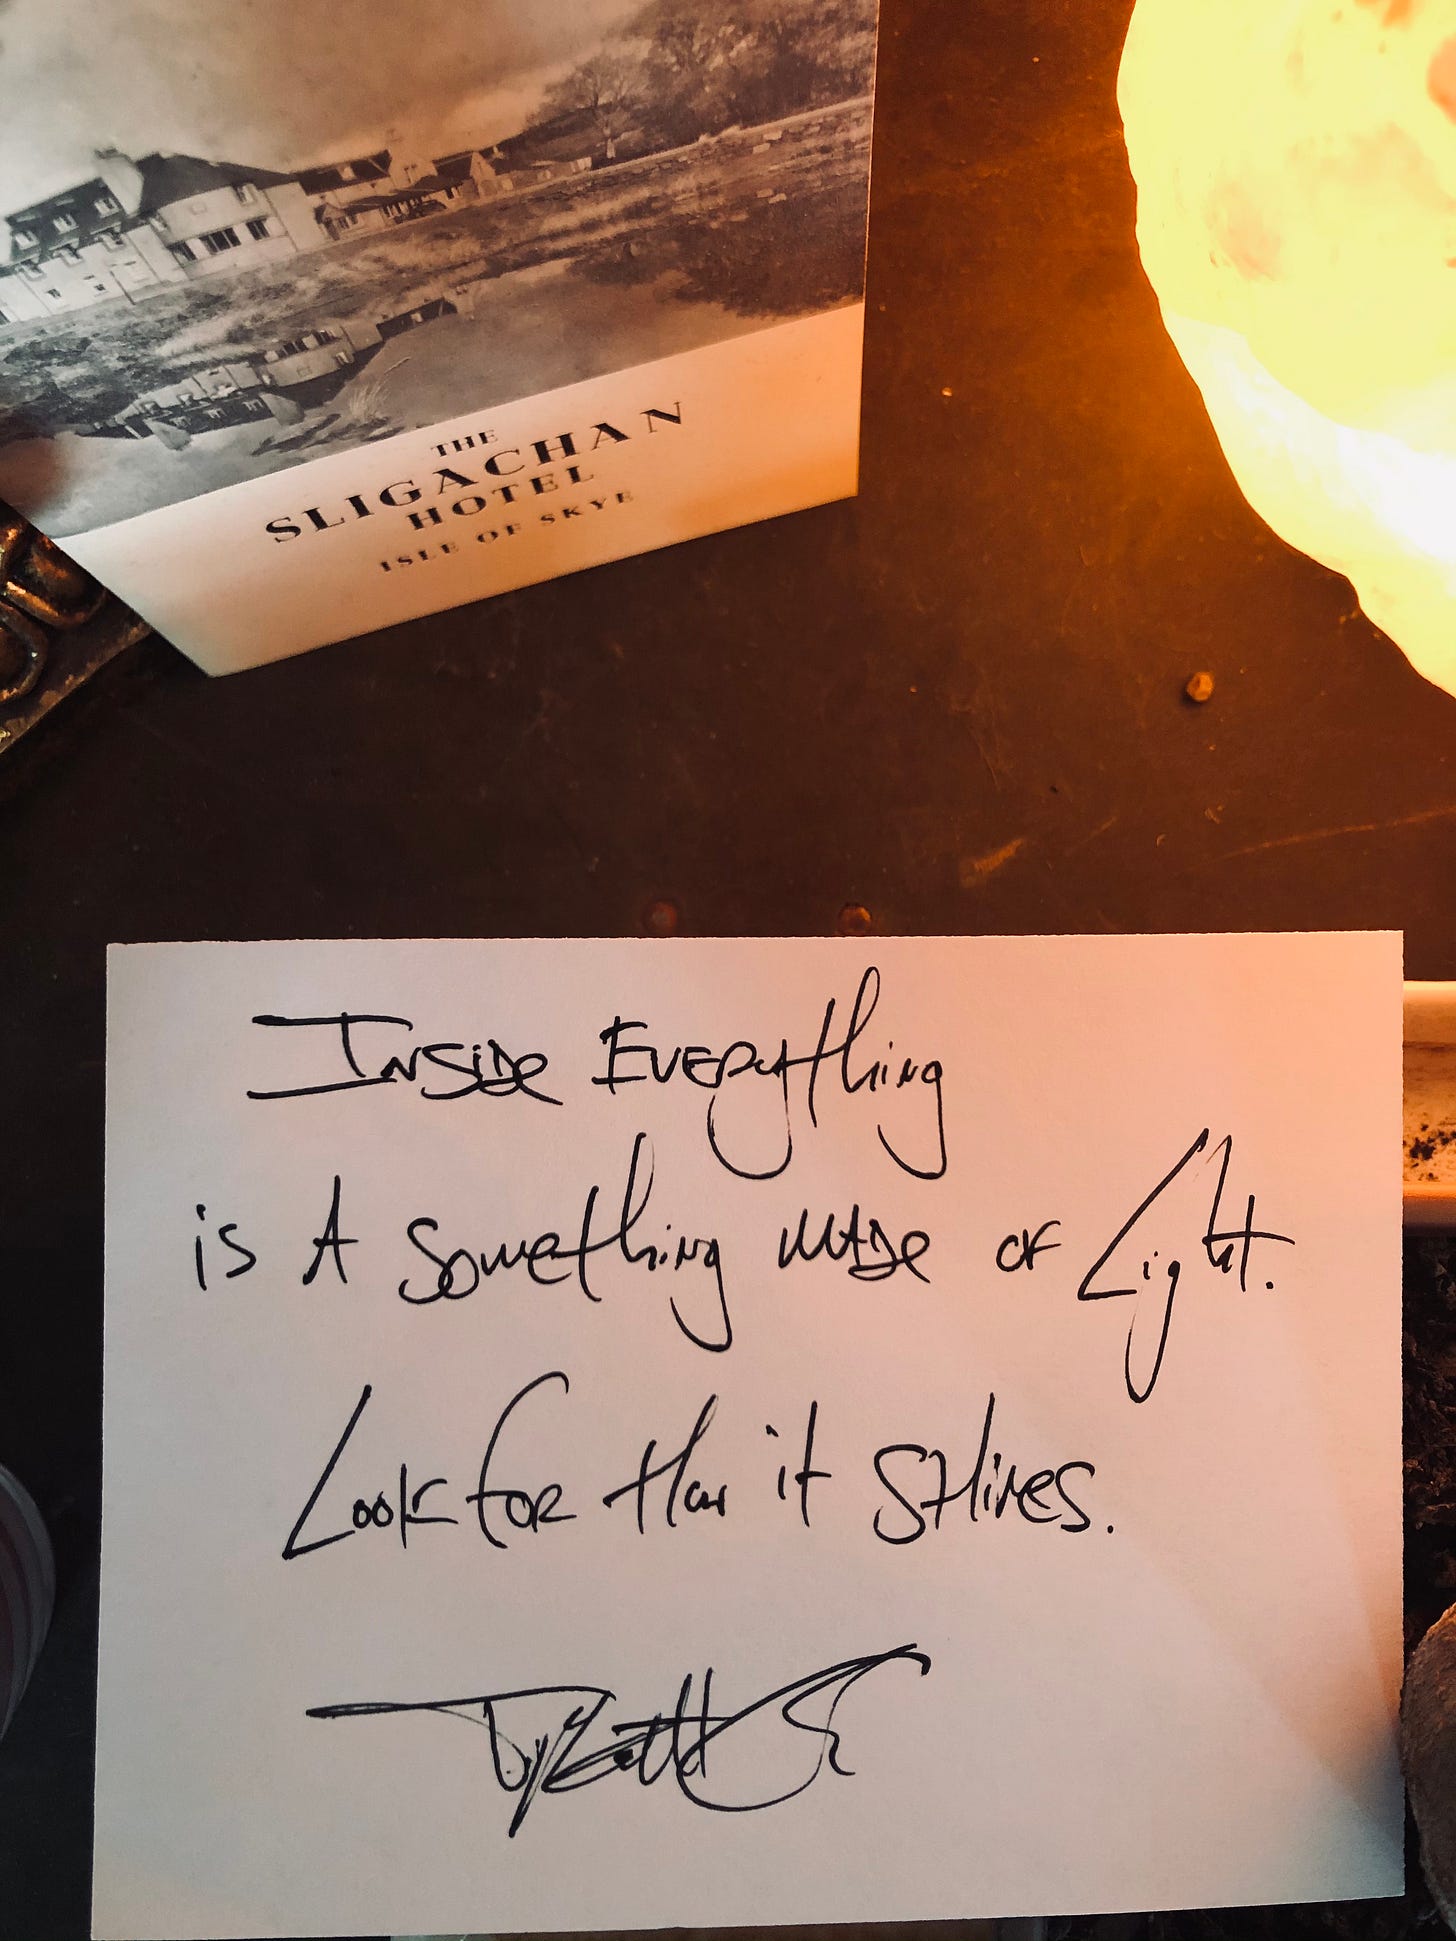 THE
SLIGACHAN
HOTEL
ISLE OF SKYE
Inside Everything
is A Something MADE OF Light.
Look for How it SHines.